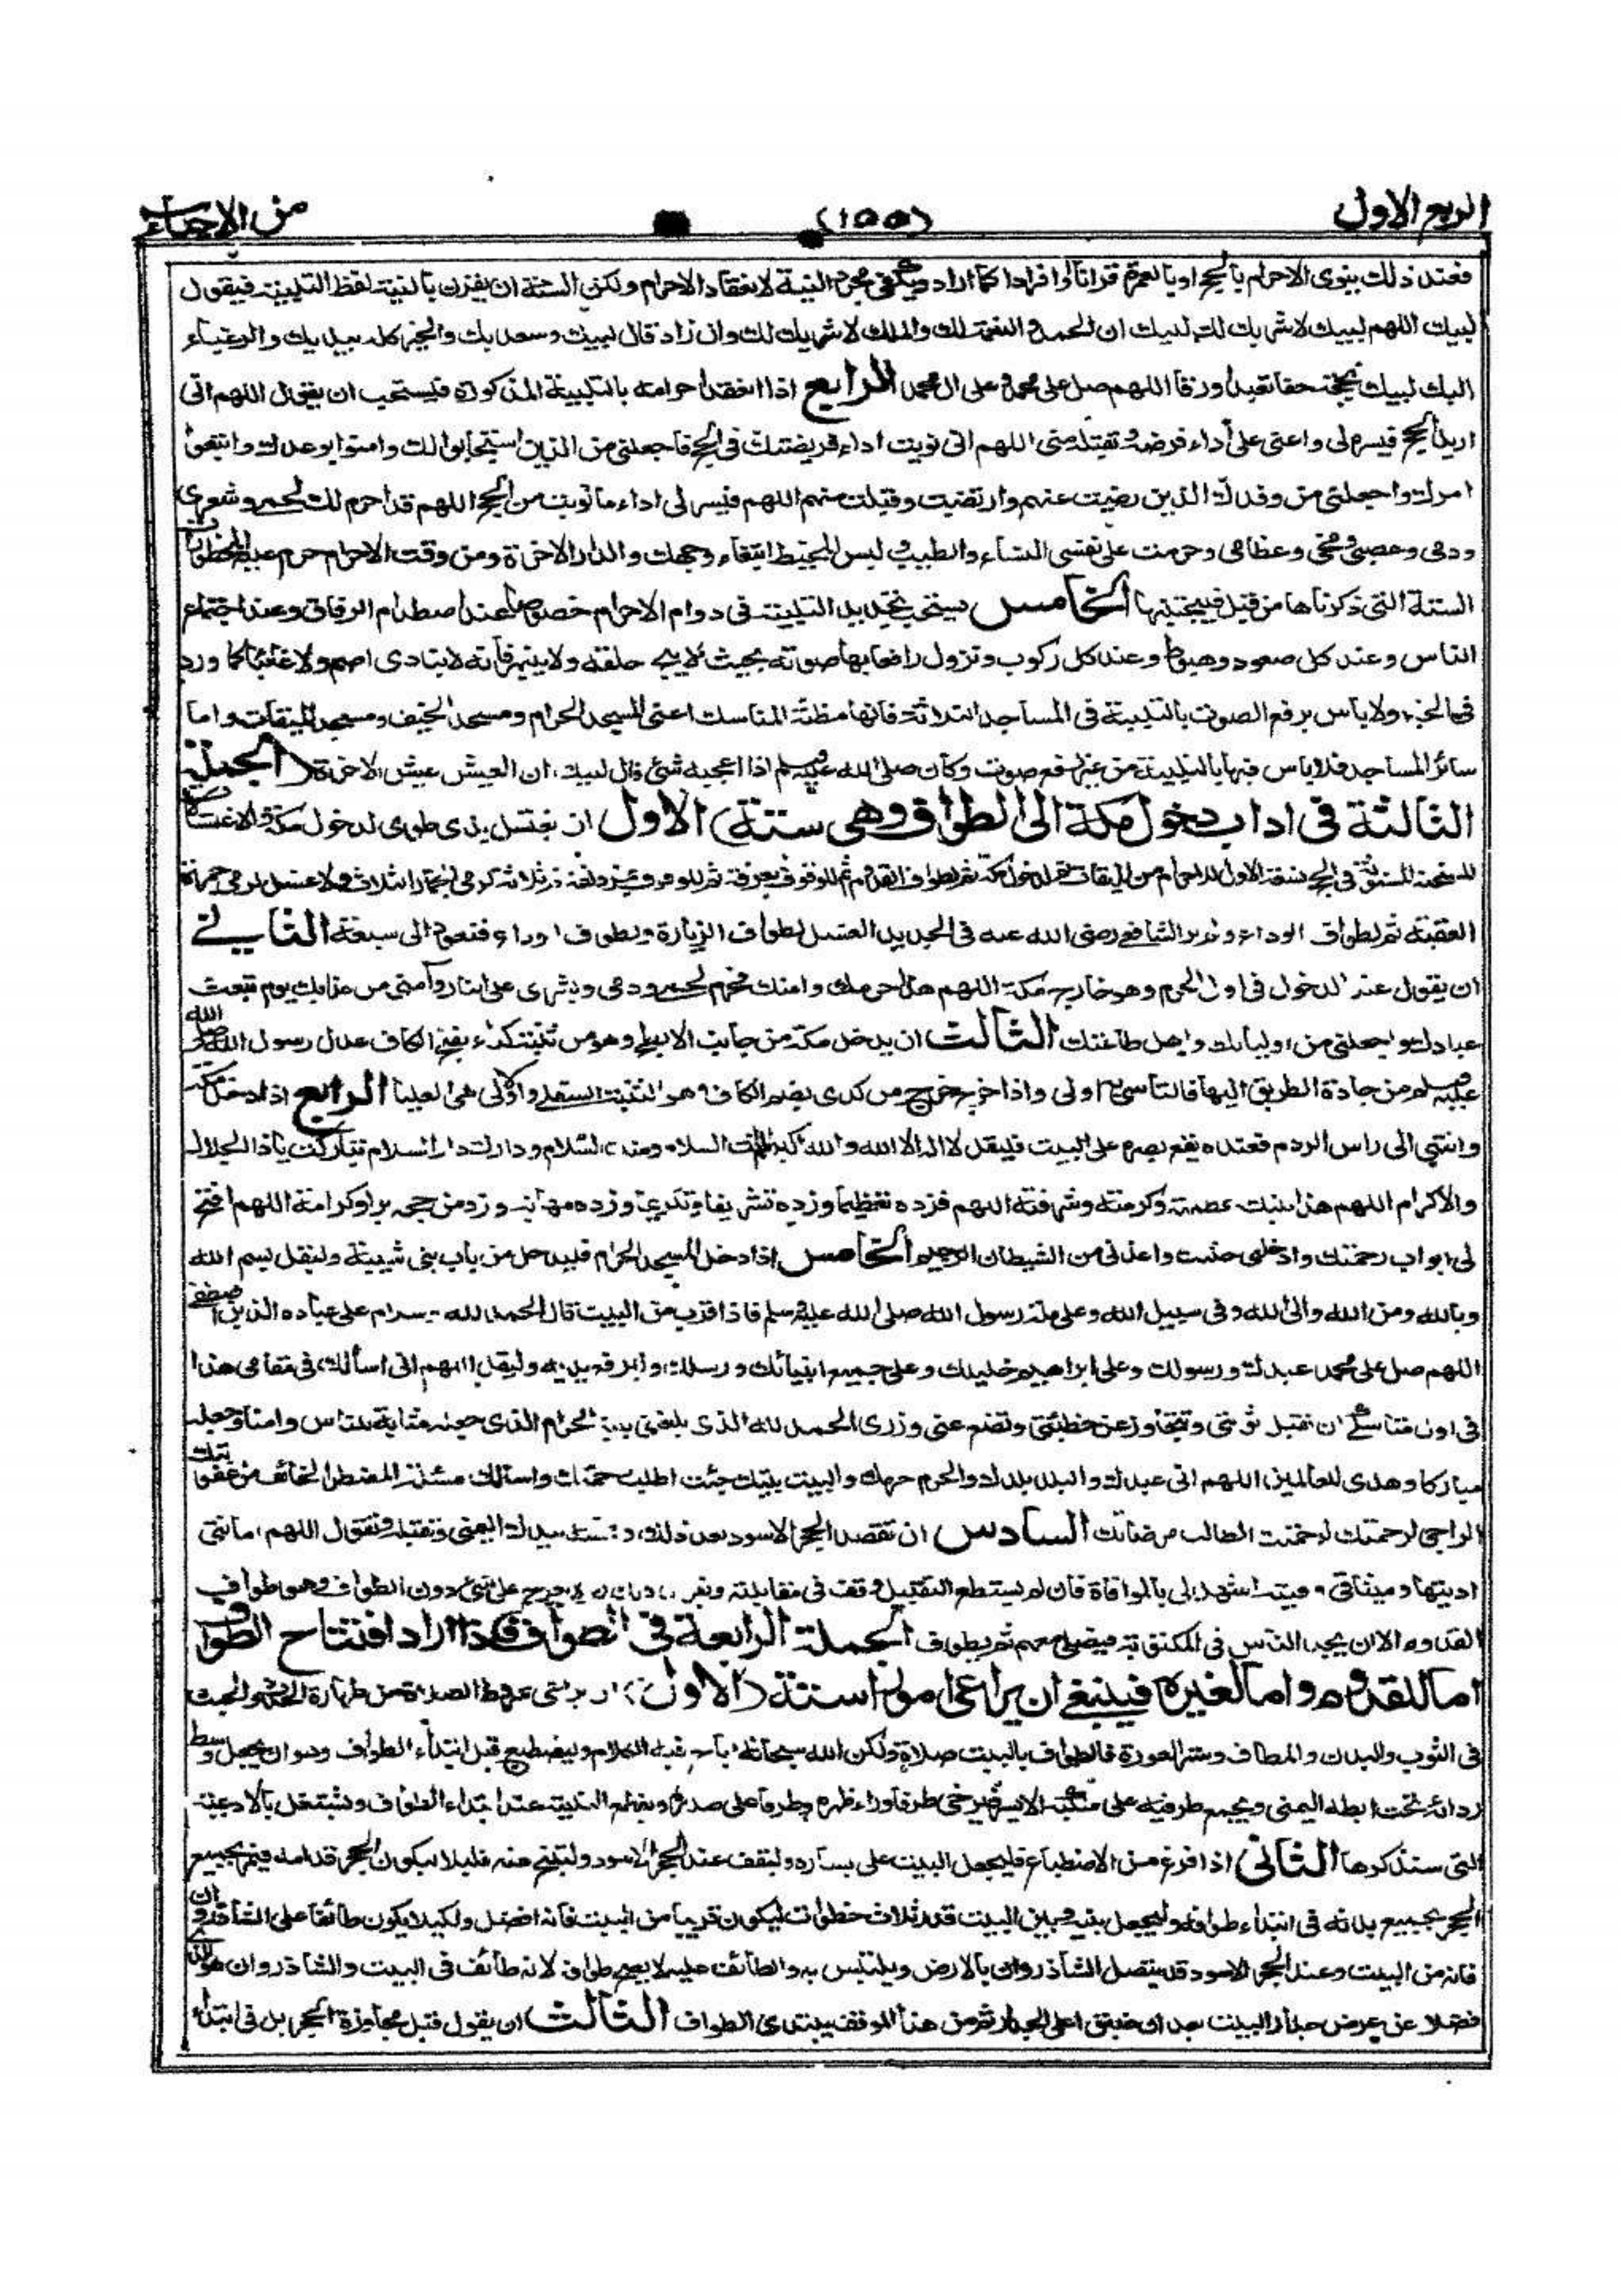 الربع الاول
(١٥٥)
من الاحياء
فعند ذلك ينوى الاحرام بالحج او بالعمرة قرانا او افرادا كما اراد ويكفى مجرد النية لانعقاد الاحرام ولكن السنة ان يقرن بالنية لفظ التلبية فيقول
لبيك اللهم لبيك لاشريك لك لبيك ان الحمد والنعمة لك والملك لاشريك لك وان زاد قال لبيك وسعديك والخير كله بيديك والرغباء
اليك لبيك بحجة حقا تعبدا ورقا اللهم صل على محمد وعلى ال محمد الرابع اذا انعقد احرامه بالتلبية المذكورة فيستحب ان يقول اللهم انى
اريد الحج فيسره لى واعنى على أداء فرضه وتقبله منى اللهم انى نويت اداء فريضتك فى الحج فاجعلنى من الذين استجابوا لك وامنوا بوعدك واتبعوا
امرك واجعلنى من وفدك الذين رضيت عنهم وارتضيت وقبلت منهم اللهم فيسر لى اداء ما نويت من الحج اللهم قد احرم لك لحمى وشعرى
ودمى وعصبى ومخى وعظامى وحرمت على نفسى النساء والطيب ولبس المخيط ابتغاء وجهك والدار الاخرة ومن وقت الاحرام حرم عليه المحظورات
الستة التى ذكرناها من قبل فيجتنبها الخامس يستحب تجديد التلبية فى دوام الاحرام خصوصا عند اصطدام الرفاق وعند اجتماع
الناس وعند كل صعود وهبوط وعند كل ركوب ونزول رافعا بها صوته بحيث لا يبح حلقه ولا ينبهر فانه لا ينادى اصم ولا غائبا كما ورد
فى الخبر ولا باس برفع الصوت بالتلبية فى المساجد الثلاثة فانها مظنة المناسك اعنى المسجد الحرام ومسجد الخيف ومسجد الميقات واما
سائر المساجد فلا باس فيها بالتلبية من غير رفع صوت وكان صلى الله عليه وسلم اذا اعجبه شئ قال لبيك ان العيش عيش الاخرة (الجملة
الثالثة فى اداب دخول مكة الى الطواف وهى ستة) الاول ان يغتسل بذى طوى لدخول مكة والاغتسالات
المستحبة المسنونة فى الحج تسعة الاول للاحرام من الميقات ثم لدخول مكة ثم لطواف القدوم ثم للوقوف بعرفة ثم للوقوف بمزدلفة ثم ثلاثة لرمى الجمار الثلاث ولا غسل لرمى جمرة
العقبة ثم لطواف الوداع ولم ير الشافعى رضى الله عنه فى الجديد الغسل لطواف الزيارة ولطواف الوداع فتعود الى سبعة الثانى
ان يقول عند الدخول فى اول الحرم وهو خارج مكة اللهم هذا حرمك وامنك فحرم لحمى ودمى وبشرى على النار وآمنى من عذابك يوم تبعث
عبادك واجعلنى من اوليائك واهل طاعتك الثالث ان يدخل مكة من جانب الابطح وهو من ثنية كداء بفتح الكاف عدل رسول الله صلى الله
عليه وسلم من جادة الطريق اليها فالتاسى به اولى واذا خرج خرج من كدى بضم الكاف وهو الثنية السفلى والاولى هى العليا الرابع اذا دخل مكة
وانتهى الى راس الردم فعنده يقع بصره على البيت فليقل لا اله الا الله والله اكبر اللهم انت السلام ومنك السلام ودارك دار السلام تباركت ياذا الجلال
والاكرام اللهم هذا بيتك عظمته وكرمته وشرفته اللهم فزده تعظيما وزده تشريفا وتكريما وزده مهابة وزد من حجه برا وكرامة اللهم افتح
لى ابواب رحمتك وادخلنى جنتك واعذنى من الشيطان الرجيم الخامس اذا دخل المسجد الحرام فليدخل من باب بنى شيبة وليقل بسم الله
وبالله ومن الله والى الله وفى سبيل الله وعلى ملة رسول الله صلى الله عليه وسلم فاذا قرب من البيت قال الحمد لله وسلام على عباده الذين اصطفى
اللهم صل على محمد عبدك ورسولك وعلى ابراهيم خليلك وعلى جميع انبيائك ورسلك وليرفع يديه وليقل اللهم انى اسألك فى مقامى هذا
فى اول مناسكى ان تقبل توبتى وتتجاوز عن خطيئتى وتضع عنى وزرى الحمد لله الذى بلغنى بيته الحرام الذى جعله مثابة للناس وامنا وجعله
مباركا وهدى للعالمين اللهم انى عبدك والبلد بلدك والحرم حرمك والبيت بيتك جئت اطلب رحمتك واسالك مسئلة المضطر الخائف من عقوبتك
الراجى لرحمتك الطالب مرضاتك السادس ان تقصد الحجر الاسود بعد ذلك وتمسه بيدك اليمنى وتقبله وتقول اللهم امانتى
اديتها وميثاقى وفيته اشهد لى بالموافاة فان لم يستطع التقبيل وقف فى مقابلته ويقول ذلك ثم لا يعرج على شئ دون الطواف وهو طواف
القدوم الا ان يجد الناس فى المكتوبة فيصلى معهم ثم يطوف الجملة الرابعة فى الطواف فاذا اراد افتتاح الطواف
اما للقدوم واما لغيره فينبغى ان يراعى امورا ستة (الاول) ان يراعى شروط الصلاة من طهارة الحدث والخبث
فى الثوب والبدن والمطاف وستر العورة فالطواف بالبيت صلاة ولكن الله سبحانه اباح فيه الكلام وليضطبع قبل ابتداء الطواف وهو ان يجعل وسط
ردائه تحت ابطه اليمنى ويجمع طرفيه على منكبه الايسر فيرخى طرفا وراء ظهره وطرفا على صدره ويقطع التلبية عند ابتداء الطواف ويشتغل بالادعية
التى سنذكرها الثانى اذا فرغ من الاضطباع فليجعل البيت على يساره وليقف عند الحجر الاسود وليتنح عنه قليلا ليكون الحجر قدامه فيمر بجميع
الحجر بجميع بدنه فى ابتداء طوافه وليجعل بينه وبين البيت قدر ثلاث خطوات ليكون قريبا من البيت فانه افضل ولكيلا يكون طائفا على الشاذروان
فانه من البيت وعند الحجر الاسود قد يتصل الشاذروان بالارض ويلتبس به والطائف عليه لا يصح طوافه لانه طائف فى البيت والشاذروان هو الذى
فضلا عن عرض جدار البيت بعد ان ضيق اعلى الجدار ثم من هذا الموقف يبتدئ الطواف الثالث ان يقول قبل مجاوزة الحجر بل فى ابتداء